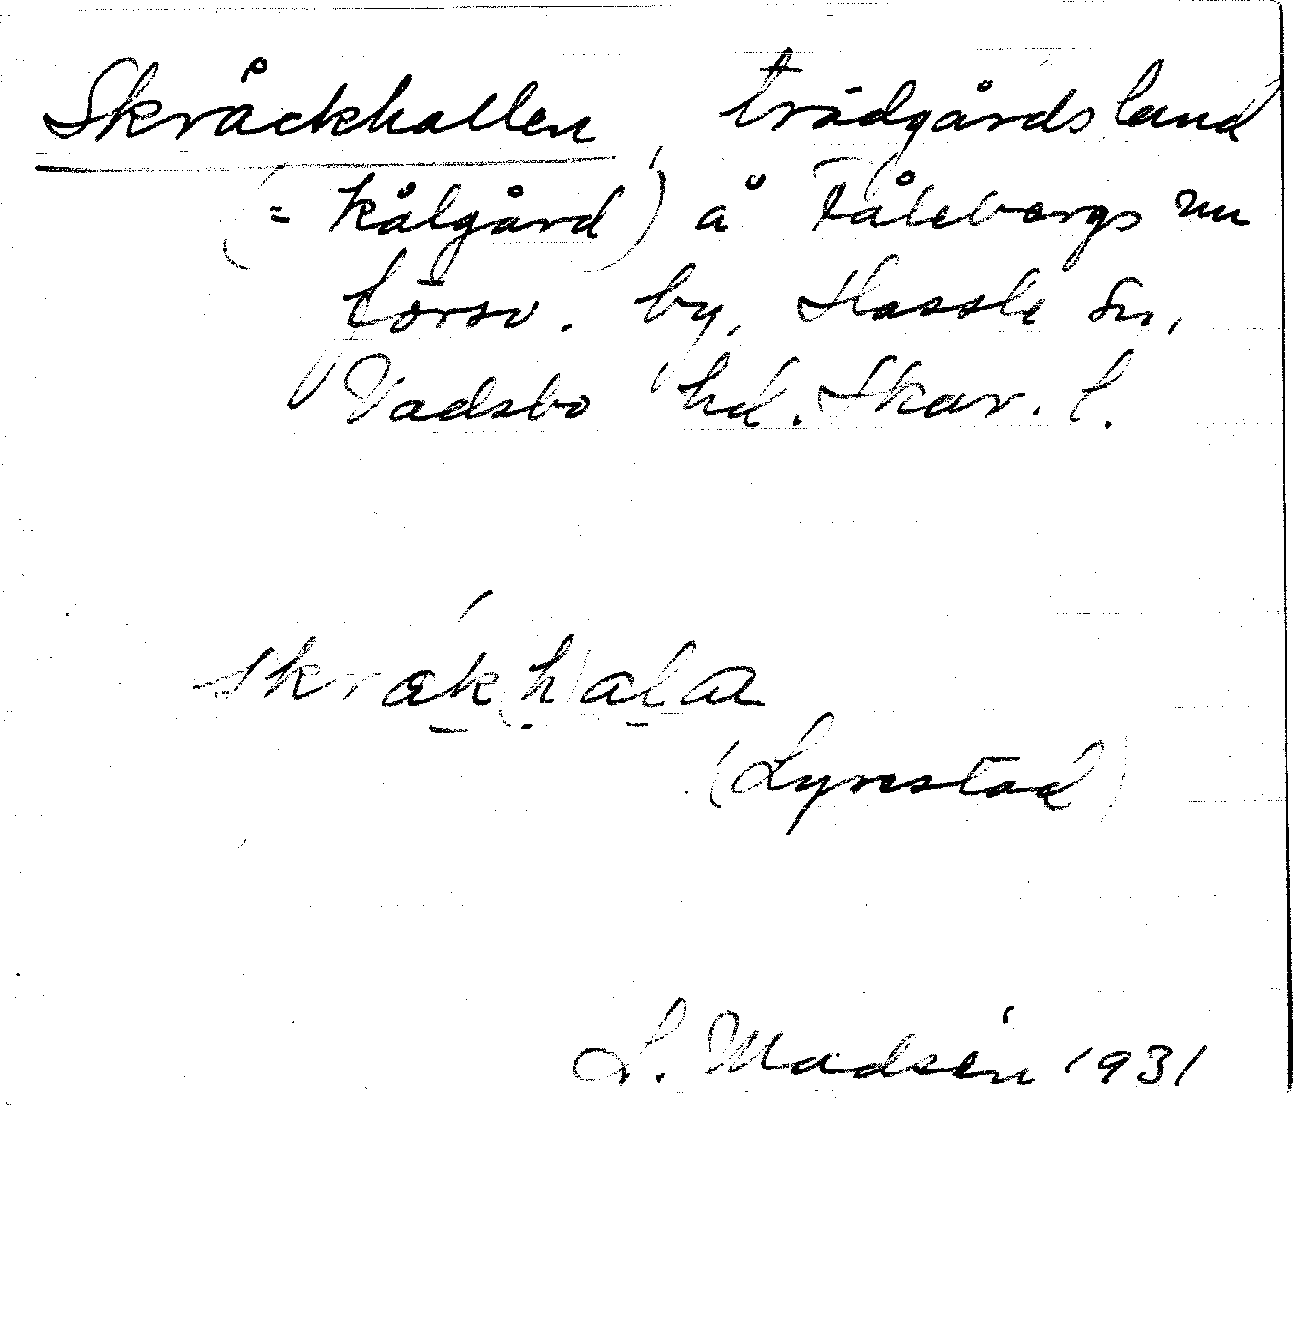 Skråckhallen, trädgårdsland
(= kålgård) å Fålebergs nu
försv. by, Hassle sn,
Vadsbo hd. Skar. l.
skrakhala
(Lyrestad)
L. Madsén 1931